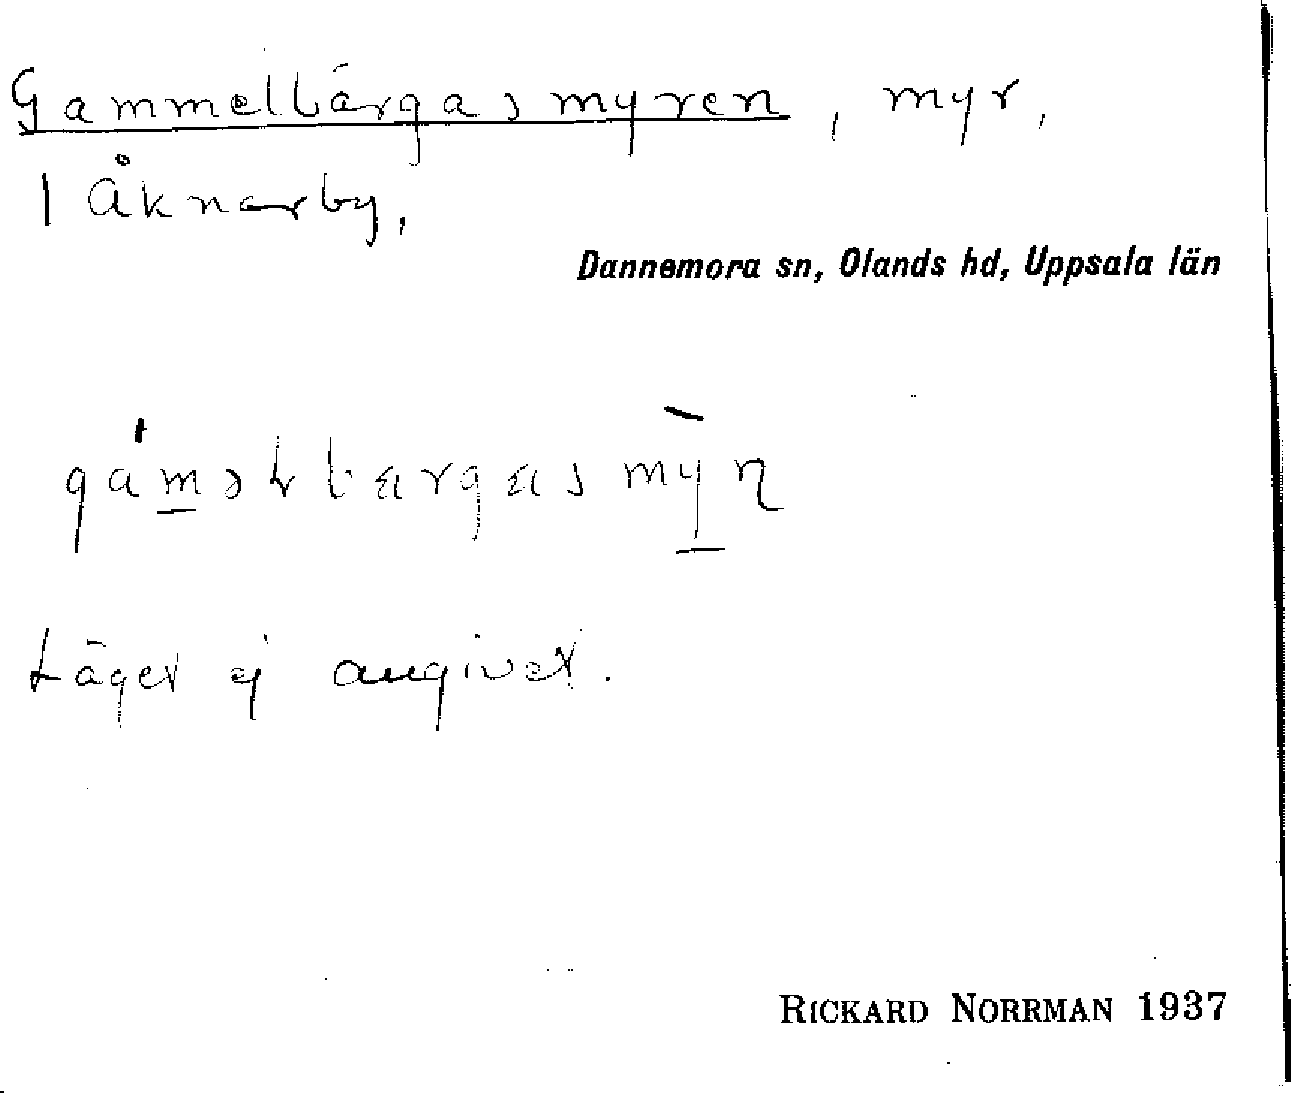 Gammelbärgasmyren, myr,
I Åknarby,
Dannemora sn, Olands hd, Uppsala län
Läget ej angivet.
RICKARD NORRMAN 1937